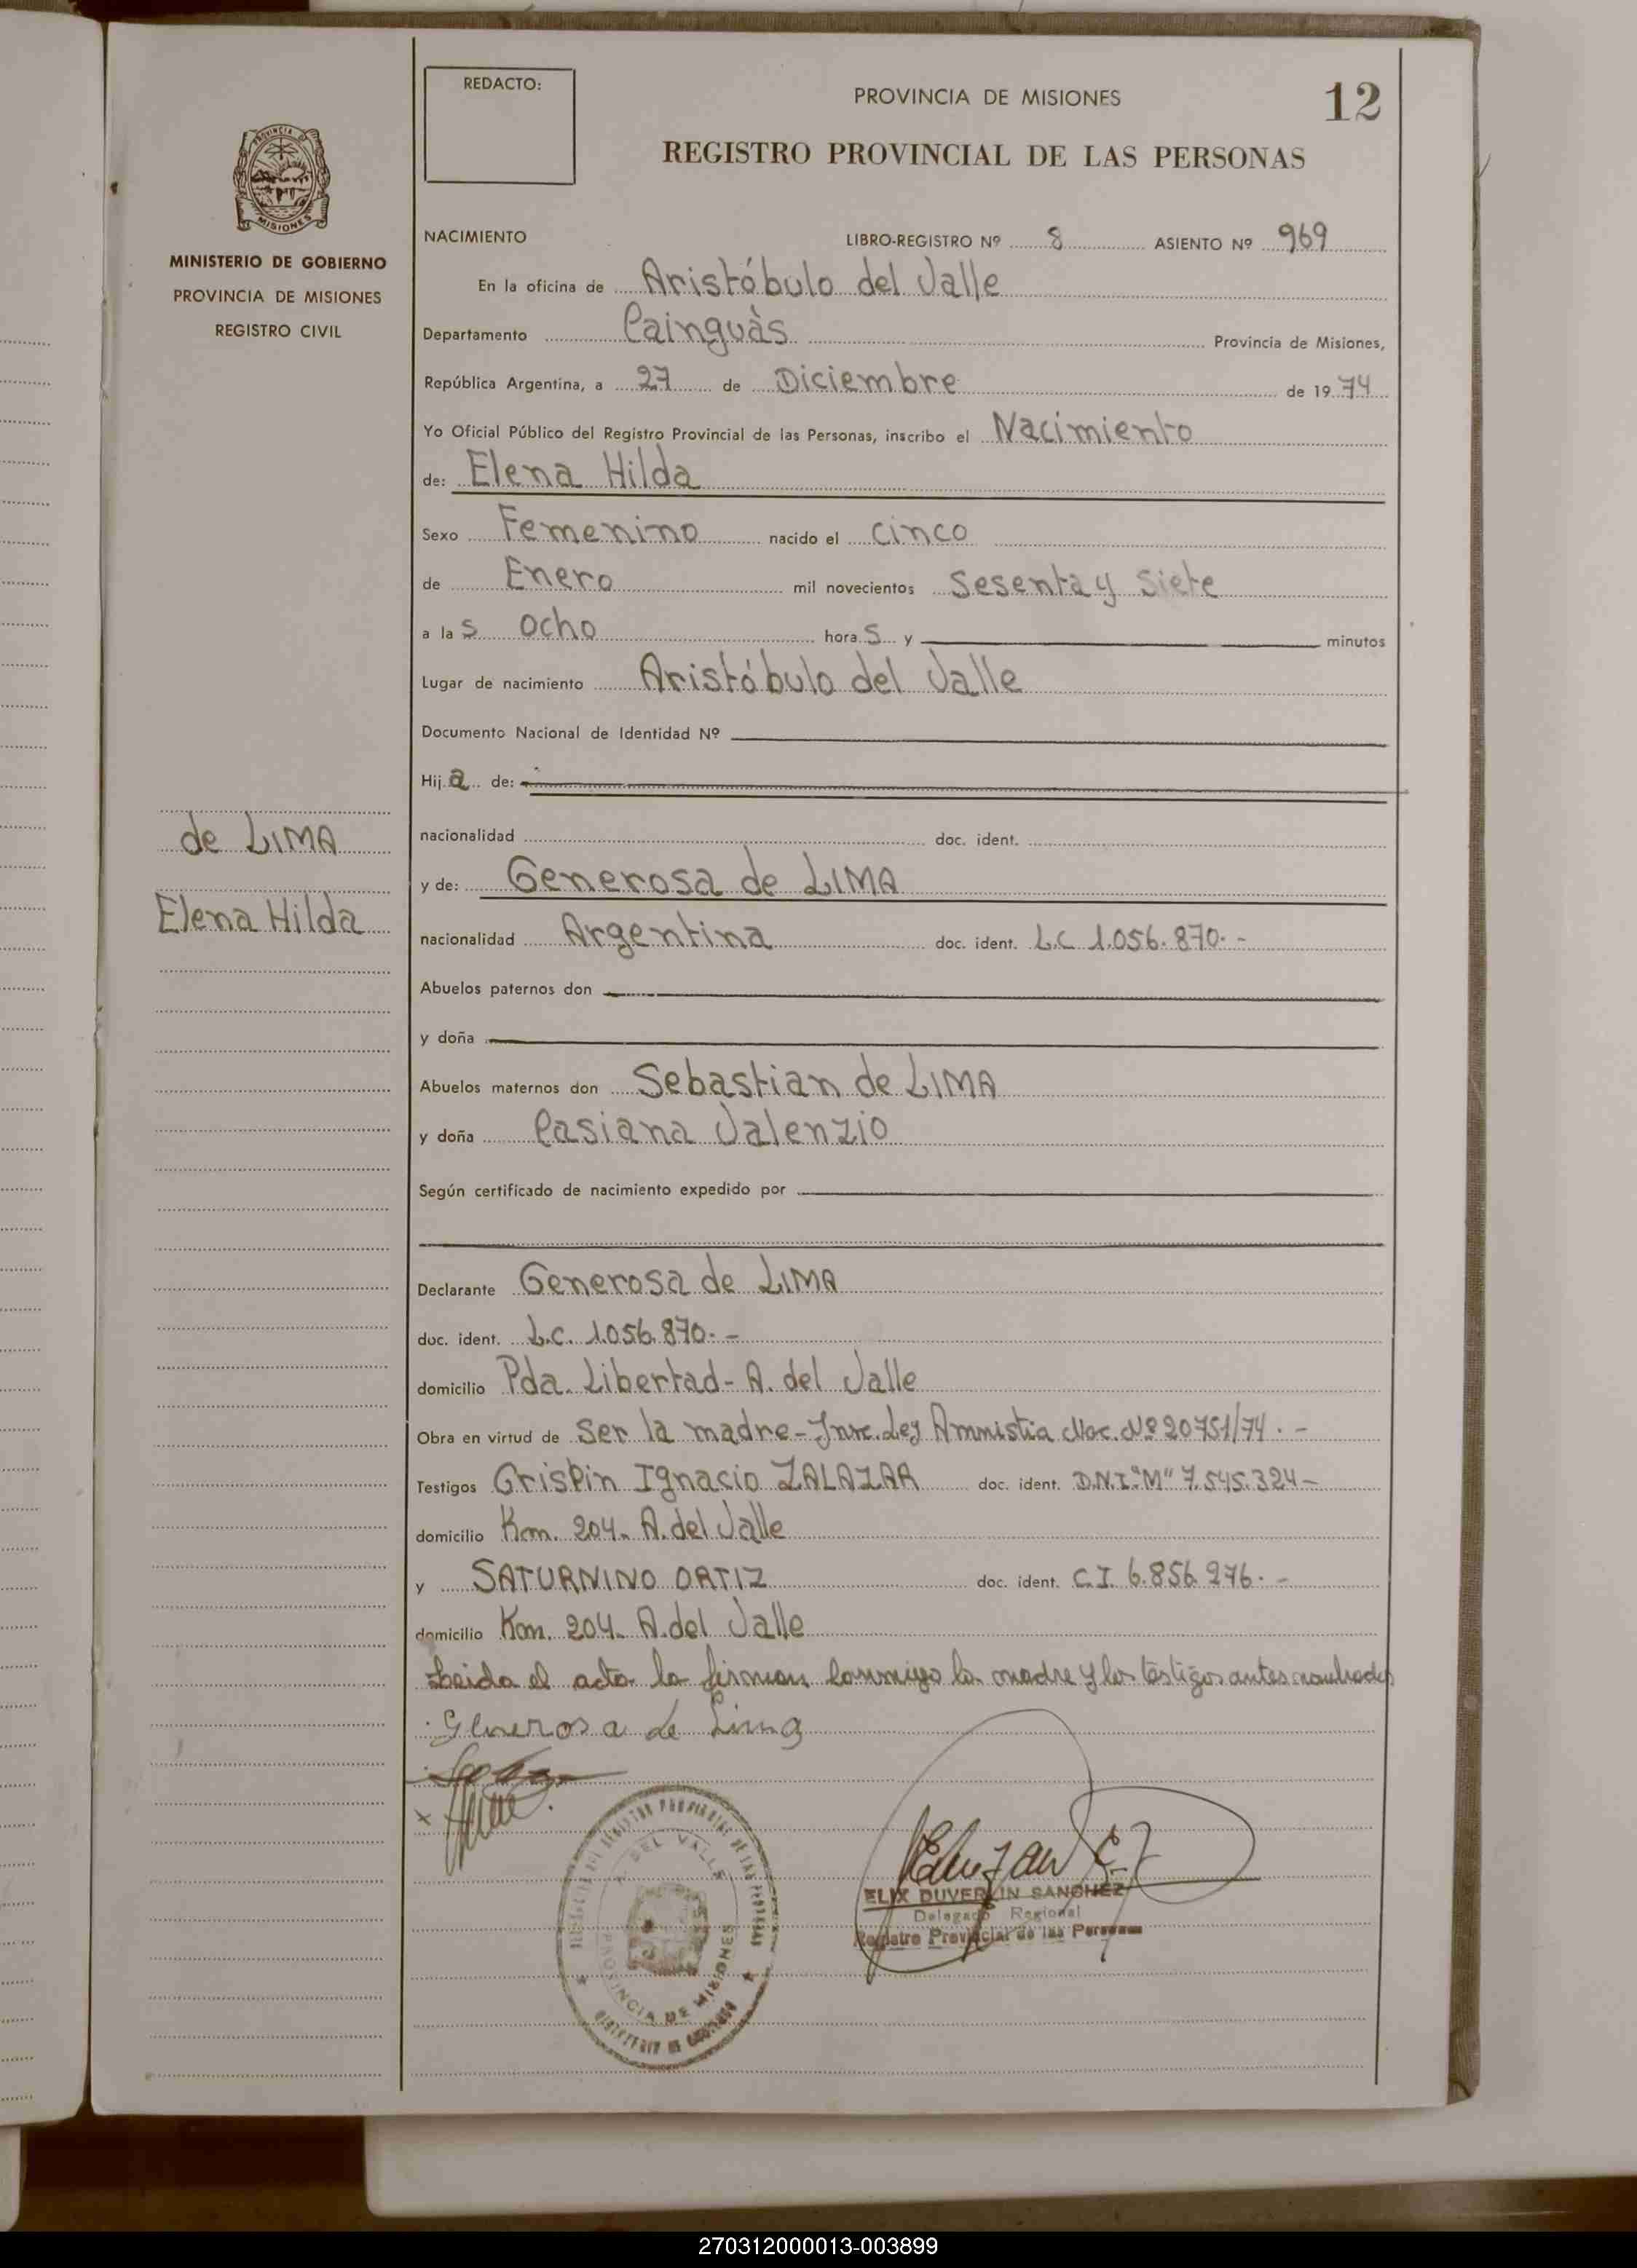 REDACTO:
PROVINCIA DE MISIONES
12
REGISTRO PROVINCIAL DE LAS PERSONAS
PROVINCIA DE
MISIONES
MINISTERIO DE GOBIERNO
PROVINCIA DE MISIONES
REGISTRO CIVIL
NACIMIENTO LIBRO-REGISTRO Nº 8 ASIENTO Nº 969
En la oficina de Aristóbulo del Valle
Departamento Cainguàs Provincia de Misiones,
República Argentina, a 27 de Diciembre de 1974
Yo Oficial Público del Registro Provincial de las Personas, inscribo el Nacimiento
de: Elena Hilda
Sexo Femenino nacido el cinco
de Enero mil novecientos Sesenta y Siete
a las ocho horas y minutos
Lugar de nacimiento Aristóbulo del Valle
Documento Nacional de Identidad Nº
Hija de:
nacionalidad doc. ident.
de LIMA
y de: Generosa de LIMA
Elena Hilda
nacionalidad Argentina doc. ident. L.C 1.056.870.-
Abuelos paternos don
y doña
Abuelos maternos don Sebastian de LIMA
y doña Casiana Valenzio
Según certificado de nacimiento expedido por
Declarante Generosa de LIMA
doc. ident. L.C. 1.056.870.-
domicilio Pda. Libertad - A. del Valle
Obra en virtud de Ser la madre - Insc. Ley Amnistia Nac. Nº 20751/74.-
Testigos Crispin Ignacio ZALAZAR doc. ident. D.N.I. "M" 7.545.324-
domicilio Km. 204. A. del Valle
y SATURNINO ORTIZ doc. ident. C.I. 6.856.276.-
domicilio Km. 204. A. del Valle
Leida el acta la firman conmigo la madre y los testigos antes nombrados
Generosa de Lima
REGISTRO PROVINCIAL DE LAS PERSONAS
DEL VALLE
PROVINCIA DE MISIONES
ELIX DUVERLIN SANCHEZ
Delegado Regional
Registro Provincial de las Personas
270312000013-003899